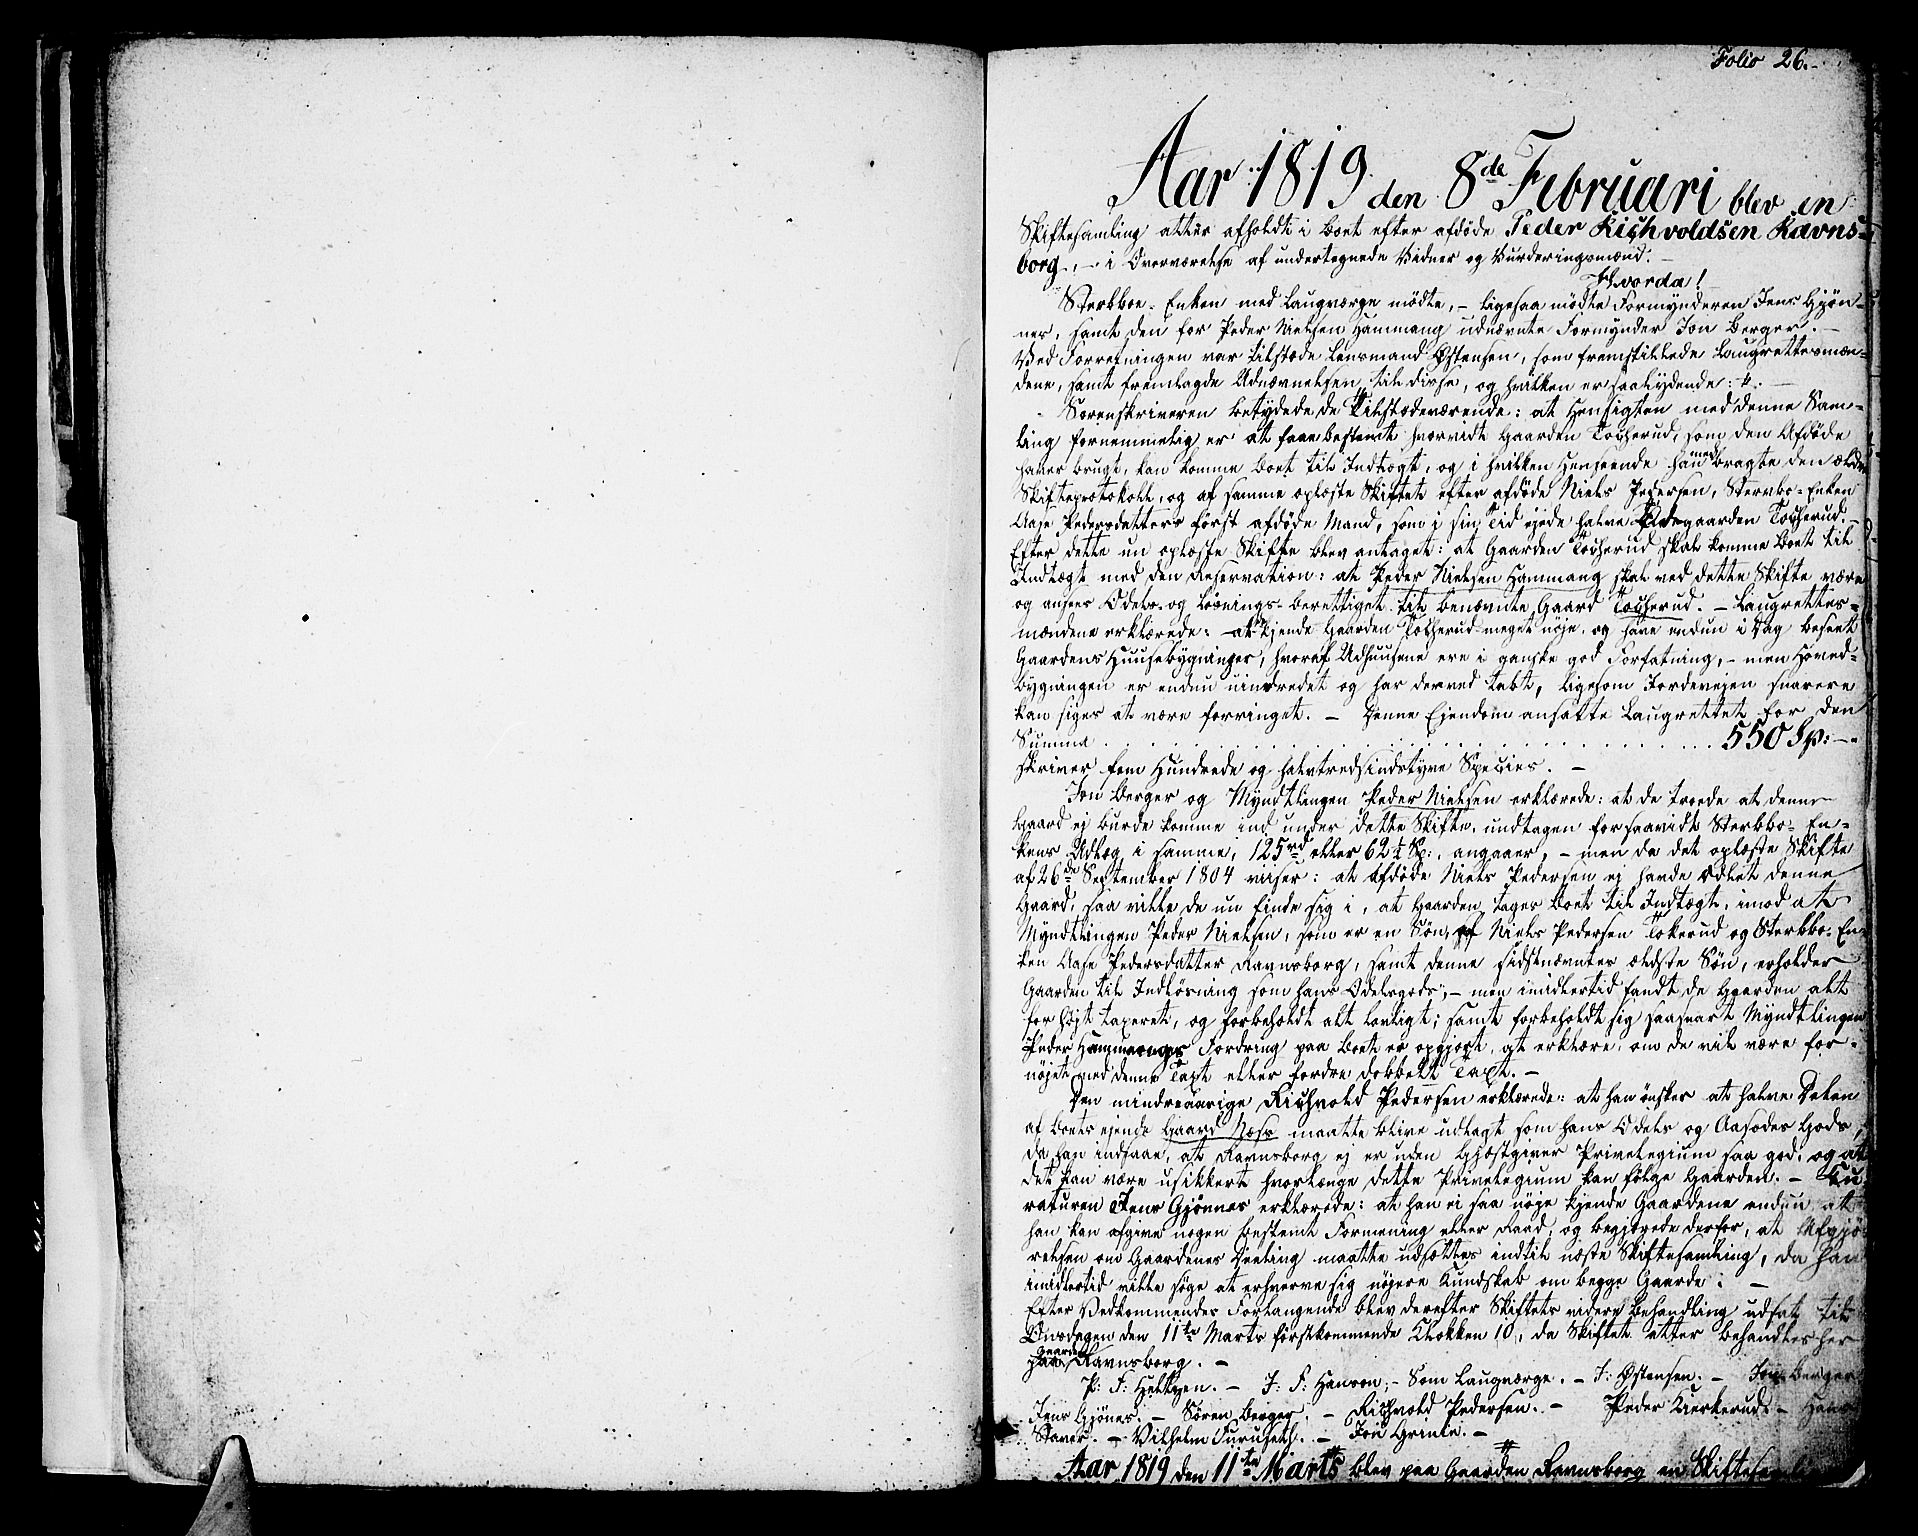 Folio 26.
Aar 1819 den 8de Februari blev en
Skiftesamling atter afholdt i Boet efter afdöde Peder Richvoldsen Ravns-
borg, – i Overværelse af undertegnede Vidner og Vurderingsmænd. –
Hvorda!
Sterbboe-Enken med Laugværge mödte, – ligesaa mödte Formynderen Jens Gjön-
nes, samt den for Peder Nielsen Hammang udnævnte Formynder Jon Berger. –
Ved Forretningen var tilstæde Lensmand Østensen, som fremstillede Laugrettesmæn-
dene, samt fremlagde Udnævnelsen til disse, og hvilken er saalydende: –
Sorenskriveren betydede de Tilstædeværende: at Hensigten med denne Sam-
ling fornemmelig er at faae bestemt hvorvidt Gaarden Tocherud, som den Afdöde
haver brugt, kan komme Boet til Indtægt, og i hvilken Henseende han medbragte den ældre
Skifteprotokoll, og af samme oplæste Skiftet efter afdöde Niels Pedersen, Stervbo-Enken
Aase Pedersdatters först afdöde Mand, som i sin Tid ejede halve Ødegaarden Tocherud. –
Efter dette nu oplæste Skifte blev antaget: at Gaarden Tocherud skal komme Boet til
Indtægt med den Reservation: at Peder Nielsen Hammang skal ved dette Skifte være
og ansees Odels- og Lösnings-berettiget til benævnte Gaard Tocherud. – Laugrettes-
mændene erklærede: – at kjende Gaarden Tocherud meget nöje, og have endnu i Dag beseet
Gaardens Huusebygninger, hvoraf Udhuusene ere i ganske god Forfatning, – men Hoved-
bygningen er endnu uindredet og har derved tabt, ligesom Jordevejen snarere
kan siges at være forringet. – Denne Ejendom ansatte Laugrettet for den
Summa . . . . . . . . . . 550 Sp: –
skriver fem Hundrede og halvtredsindstyve Species. –
Jon Berger og Myndtlingen Peder Nielsen erklærede: at de troede at denne
Gaard ej burde komme ind under dette Skifte, undtagen forsaavidt Sterbbo-En-
kens Udlæg i samme, 125 rd eller 62½ Sp:, angaaer, – men da det oplæste Skifte
af 26de September 1804 viiser: at afdöde Niels Pedersen ej havde odlet denne
Gaard, saa vilde de nu finde sig i, at Gaarden tages Boet til Indtægt, imod at
Myndtlingen Peder Nielsen, som er en Sön af Niels Pedersen Tokerud og Sterbbo-En-
ken Aase Pedersdatter Ravnsborg, samt denne sidstnævntes ældste Sön, erholder
Gaarden til Indlösning som hans Odelsgods, – men imidlertid fandt de Gaarden alt
for höjt taxeret, og forbeholdt alt lovligt; samt forbeholdt sig saasnart Myndtlingen
Peder Hammangs Fordring paa Boet er opgjort, at erklære, om de vil være for-
nöjet med denne Taxt eller fordre dobbelt Taxt. –
Den mindreaarige Richvold Pedersen erklærede: at han önsker at halve Delen
af Boets ejende Gaard Næss maatte blive udlagt som hans Odels og Aasædes Gods,
da han indsaae, at Ravnsborg ej er uden Gjæstgiver Privelegium saa god, og at
det kan være usikkert hvorlænge dette Privelegium kan fölge Gaarden. – Cu-
ratoren Jens Gjönnes erklærede: at han ei saa nöje kjende Gaardene endnu at
han kan afgive nogen bestemt Formening eller Raad, og begjærede derfor, at Afgjö-
relsen om Gaardenes Deeling maatte udsættes indtil næste Skiftesamling, da han
imidlertid vilde söge at erhverve sig nöjere Kundskab om begge Gaarde: –
Efter Vedkommendes Forlangende blev derefter Skiftets videre Behandling udsat til
Onsdagen den 11te Marts förstkommende Klokken 10, da Skiftet atter behandles her
paa Gaarden Ravnsborg. –
P: F: Heltzen. – J: F: Hanson, – Som Laugværge. – J: Østensen. – Jon Berger
Jens Gjönes. – Sören Berger. – Richvold Pedersen. – Peder Kierkerud. – Hans
Staver. – Vilhelm Furuseth. – Jon Grinie. –
Aar 1819 den 11te Marts blev paa Gaarden Ravnsborg en Skiftesamling